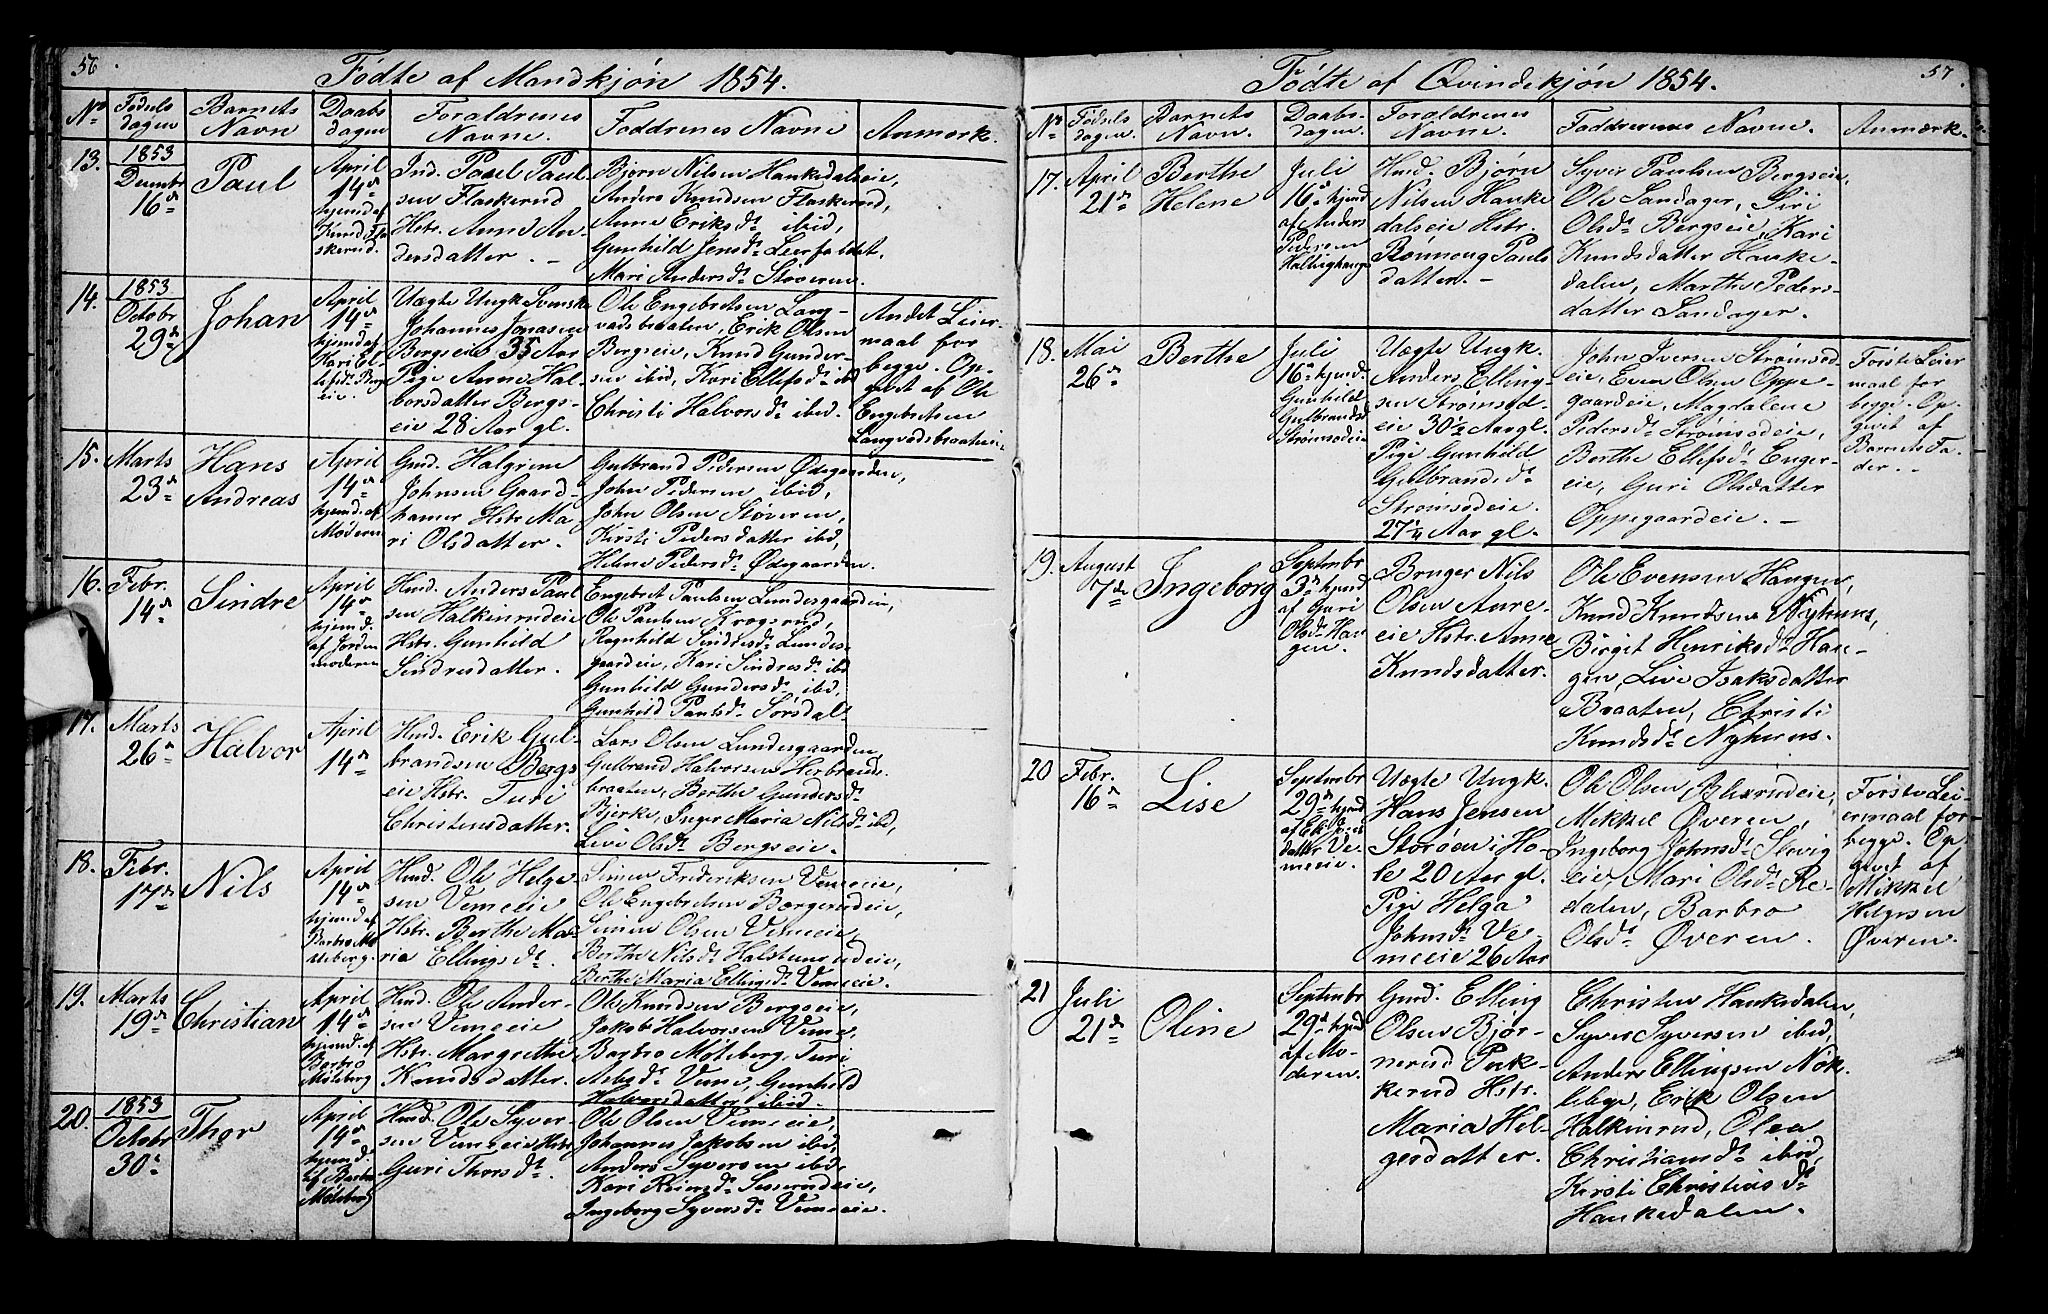 56.
Fødte af Mandkjøn 1854.
No Fødsels dagen Barnets Navn Daabs dagen Foraldrenes Navne. Faddrenes Navne Anmærk.
13. 1853 Decembr 16de
Paul
April 14de hjemd. af Knud Flaskerud.
Ind. Paul Paul
sen Flaskerud
Hstr. Anne An
dersdatter. –
Bjørn Nilsen Hankedalseie,
Anders Knudsen Flaskerud,
Anne Eriksdr ibid,
Gunhild Jensdr Leerfaldet,
Mari Andersdr Støveren.
14. 1853 Octobr 29de
Johan
April 14de hjemd. af Kari Ellefsdr Bergseie.
Uægte Ungk. Svenske
Johannes Jonasen
Bergseie 35 Aar
Pige Anne Hal
borsdatter Bergs-
eie 28 Aar gl.
Ole Engebretsen Lang-
vadsbraaten, Erik Olsen
Bergseie, Knud Gunder-
sen ibid, Kari Ellefsdr ibid
Christi Halvorsdr ibid.
Andet Leier-
maal for
begge. Op-
givet af Ole
Engebretsen
Langvadsbraaten
15. Marts 23de
Hans
Andreas
April 14de hjemd. af Moderen
Gmd. Halgrim
Johnsen Gaard-
hamer Hstr. Ma-
ri Olsdatter.
Gulbrand Pedersen Ødegaarden,
John Pedersen ibid,
John Olsen Støveren,
Kirsti Pedersdatter ibid,
Helene Pedersdr Ødegaarden.
16. Febr. 14de
Sindre
April 14de hjemd. af Jordemoderen
Hmd. Anders Paul
sen Halkinrudeie
Hstr. Gunhild
Sindresdatter.
Engebret Paulsen Lundesgaarden,
Ole Paulsen Krogsrud,
Ragnhild Sindresdr Lundes-
gaardeie, Kari Sindresdr ibid
Gunhild Gundersdr ibid,
Gunhild Paulsdr Sørsdal.
17. Marts 26de
Halvor
April 14de
Hmd. Erik Gul-
brandsen Bergs
eie Hstr. Turi
Christensdatter.
Lars Olsen Lundesgaarden
Gulbrand Halvorsen Herbrands-
braaten, Berthe Gundersdr
Bjerke, Inger Maria Nilsdr ibid,
Live Olsdr Bergseie.
18. Febr. 17de
Nils
April 14de hjemd af Barbro Møleberg.
Hmd. Ole Helge
sen Vemeeie
Hstr. Berthe Ma-
ria Ellingsdr.
Simen Frederiksen Vemeeie,
Ole Engebretsen Børgerudeie,
Simen Olsen Vemeeie,
Berthe Nilsdr Halstenrudeie,
Berthe Maria Ellingsdr Vemeeie.
19. Marts 19de
Christian
April 14de hjemd. af Barbro Møleberg
Hmd. Ole Ander-
sen Vemeeie
Hstr. Margrethe
Knudsdatter.
Ole Knudsen Bergseie,
Jakob Halvorsen Veme,
Barbro Møleberg, Turi
Veme, Gunhild
Halvorsdatter ibid.
20. 1853 Octobr 30te
Thor
April 14de hjemd. af Barbro Møleberg
Hmd. Ole Syver-
sen Vemeeie Hstr.
Guri Thorsdr.
Ole Olsen Vemeeie,
Johannes Jakobsen ibid,
Anders Syversen ibid,
Kari Reiersdr Sesserudeie,
Ingeborg Syversdr Vemeeie.
57.
Fødte af Qvindekjøn 1854.
No Fødsels dagen. Barnets Navn. Daabs- dagen. Foraldrenes Navne. Faddrenes Navne. Anmærk.
17. April 21de
Berthe
Helene
Juli 16de hjemd af Anders Pedersen Hallinghaugen
Hmd. Bjørn
Nilsen Hanke
dalseie Hstr.
Rønnoug Pauls
datter. –
Syver Paulsen Bergseie,
Ole Sandager, Siri
Olsdr Bergseie, Kari
Knudsdatter Hanke-
dalen, Marthe Peders-
datter Sandager.
18. Mai 26de
Berthe
Juli 16de hjemd. Gunhild Gulbrandsd Strømsodeie
Uægte Ungk.
Anders Elling-
sen Strømsod-
eie 30½ Aar gl.
Pige Gunhild
Gulbrandsdr
Strømsodeie
27¼ Aar gl.
John Iversen Strømsod
eie, Even Olsen Oppe-
gaardeie, Magdalene
Pedersdr Strømsodeie,
Berthe Ellefsdr Enger-
eie, Guri Olsdatter
Oppegaardeie. –
Første Leier
maal for
begge. Op-
givet af
Barnets Fa-
der. –
19. August 7de
Ingeborg
Septembr 3de hjemd af Guri Olsdr Haugen.
Bruger Nils
Olsen Aure-
eie Hstr. Anne
Knudsdatter.
Ole Evensen Haugen,
Knud Knudsen Nyhuus,
Birgit Henriksdr Hau-
gen, Live Isaksdatter
Braaten, Christi
Knudsdr Nyhuus.
20 Febr. 16de
Lise
Septembr 29de hjemd datter Vemeeie.
Uægte Ungk.
Hans Jensen
Storøen i Ho-
le 20 Aar gl.
Pige Helga
Johnsdr Ve-
meeie 26 Aar
Ole Olsen Blixrudeie,
Mikkel Øveren,
Ingeborg Johnsdr Slevig
eie, Mari Olsdr Re-
dalen, Barbro
Olsdr Øveren.
Første Lei-
ermaal for
begge. Op-
givet af
Mikkel
Helgesen
Øveren.
21 Juli 21de
Oline
Septembr 29de hjemd af Mo- deren.
Gmd. Elling
Olsen Bjør-
nerud Puk-
kerud Hstr.
Maria Hel-
gesdatter.
Christen Hankedalen,
Syver Syversen ibid,
Anders Ellingsen Nøk-
leby, Erik Olsen
Halkinrud, Olea
Christiansdr ibid,
Kirsti Christiansdr
Hankedalen.